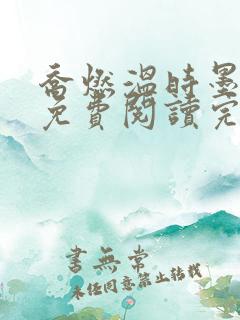 喬燃溫時墨
免費閱讀完
書無常
未經同意禁止轉載